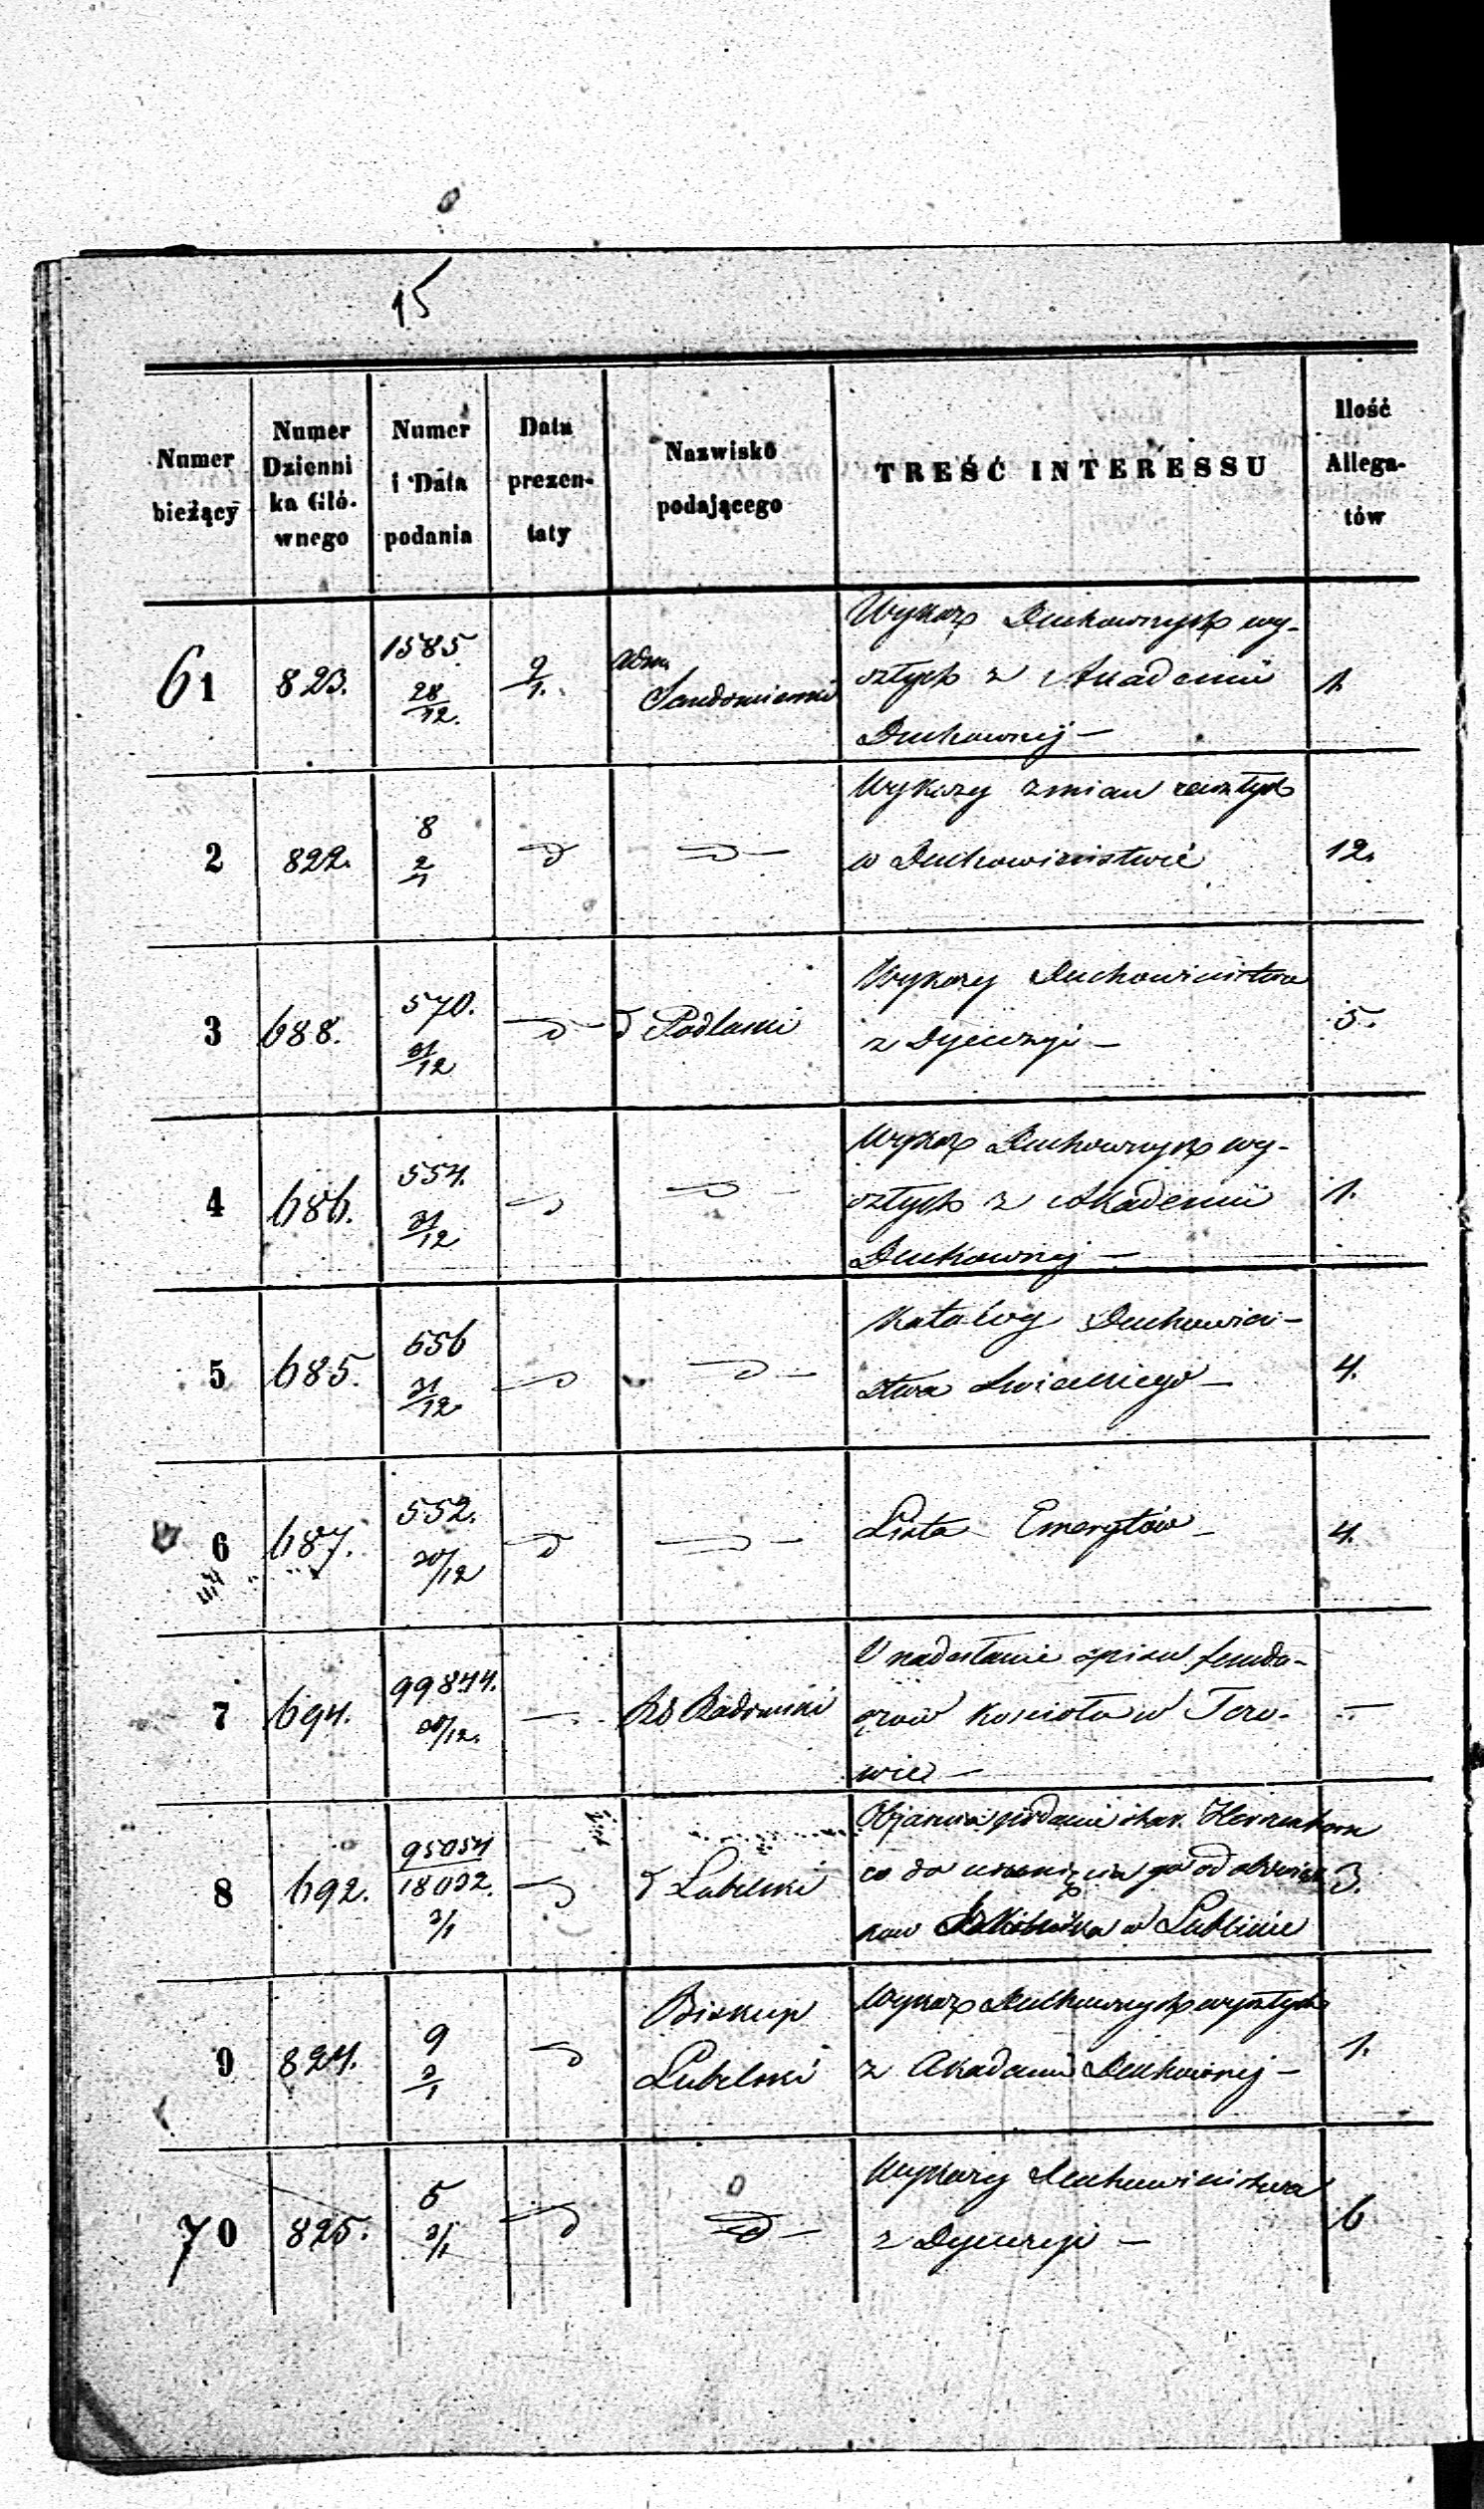 15
Numer bieżący
Numer Dzienni ka Głó- wnego
Numer i Data podania
Data prezen- taty
Nazwisko podającego
TREŚĆ INTERESSU
Ilość Allega- tów
61 823. 1585. 28/12. 9/1. Adm. Sandomierski 1.
Wykaz Duchownych wy-
szłych z Akademii
Duchownej —
2 822. 8 2/1 d d 12.
Wykazy zmian zaszłych
w Duchowieństwie
3 688. 570. 31/12 d d Podlaski 5.
Wykazy Duchowieństwa
z Dyecezyi —
4 686. 554. 31/12 d d 1.
Wykaz Duchownych wy-
szłych z Akademii
Duchownej —
5 685. 556 31/12 d d 4.
Katalog Duchowień-
stwa Swieckiego —
6 687. 552. 20/12 d d 4.
Lista Emerytów —
7 694. 99844. 20/12. — Rd Radomski —
O nadesłanie spisu fundu-
szów kościoła w
wie —
8 692. 95054 18032. 2/1 d d Lubelski 3.
Objaśnia podanie
co do usunięcia go od obowiąz
ków w Lublinie
9 824. 9 2/1 d Biskup Lubelski 1.
Wykaz Duchownych wyszłych
z Akademii Duchownej —
70 825. 5 2/1 d d 6
Wykazy Duchowieństwa
z Dyecezyi —